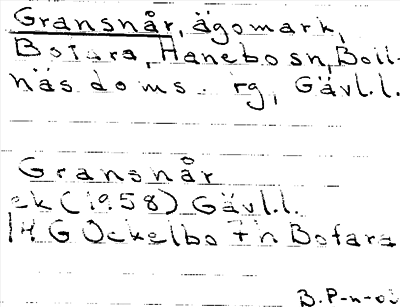 Gransnår, ägomark,
Bofara, Hanebo sn, Boll-
näs doms. rg, Gävl.l.
Gransnår
ek (1958) Gävl.l.
14 G Ockelbo + n Bofara